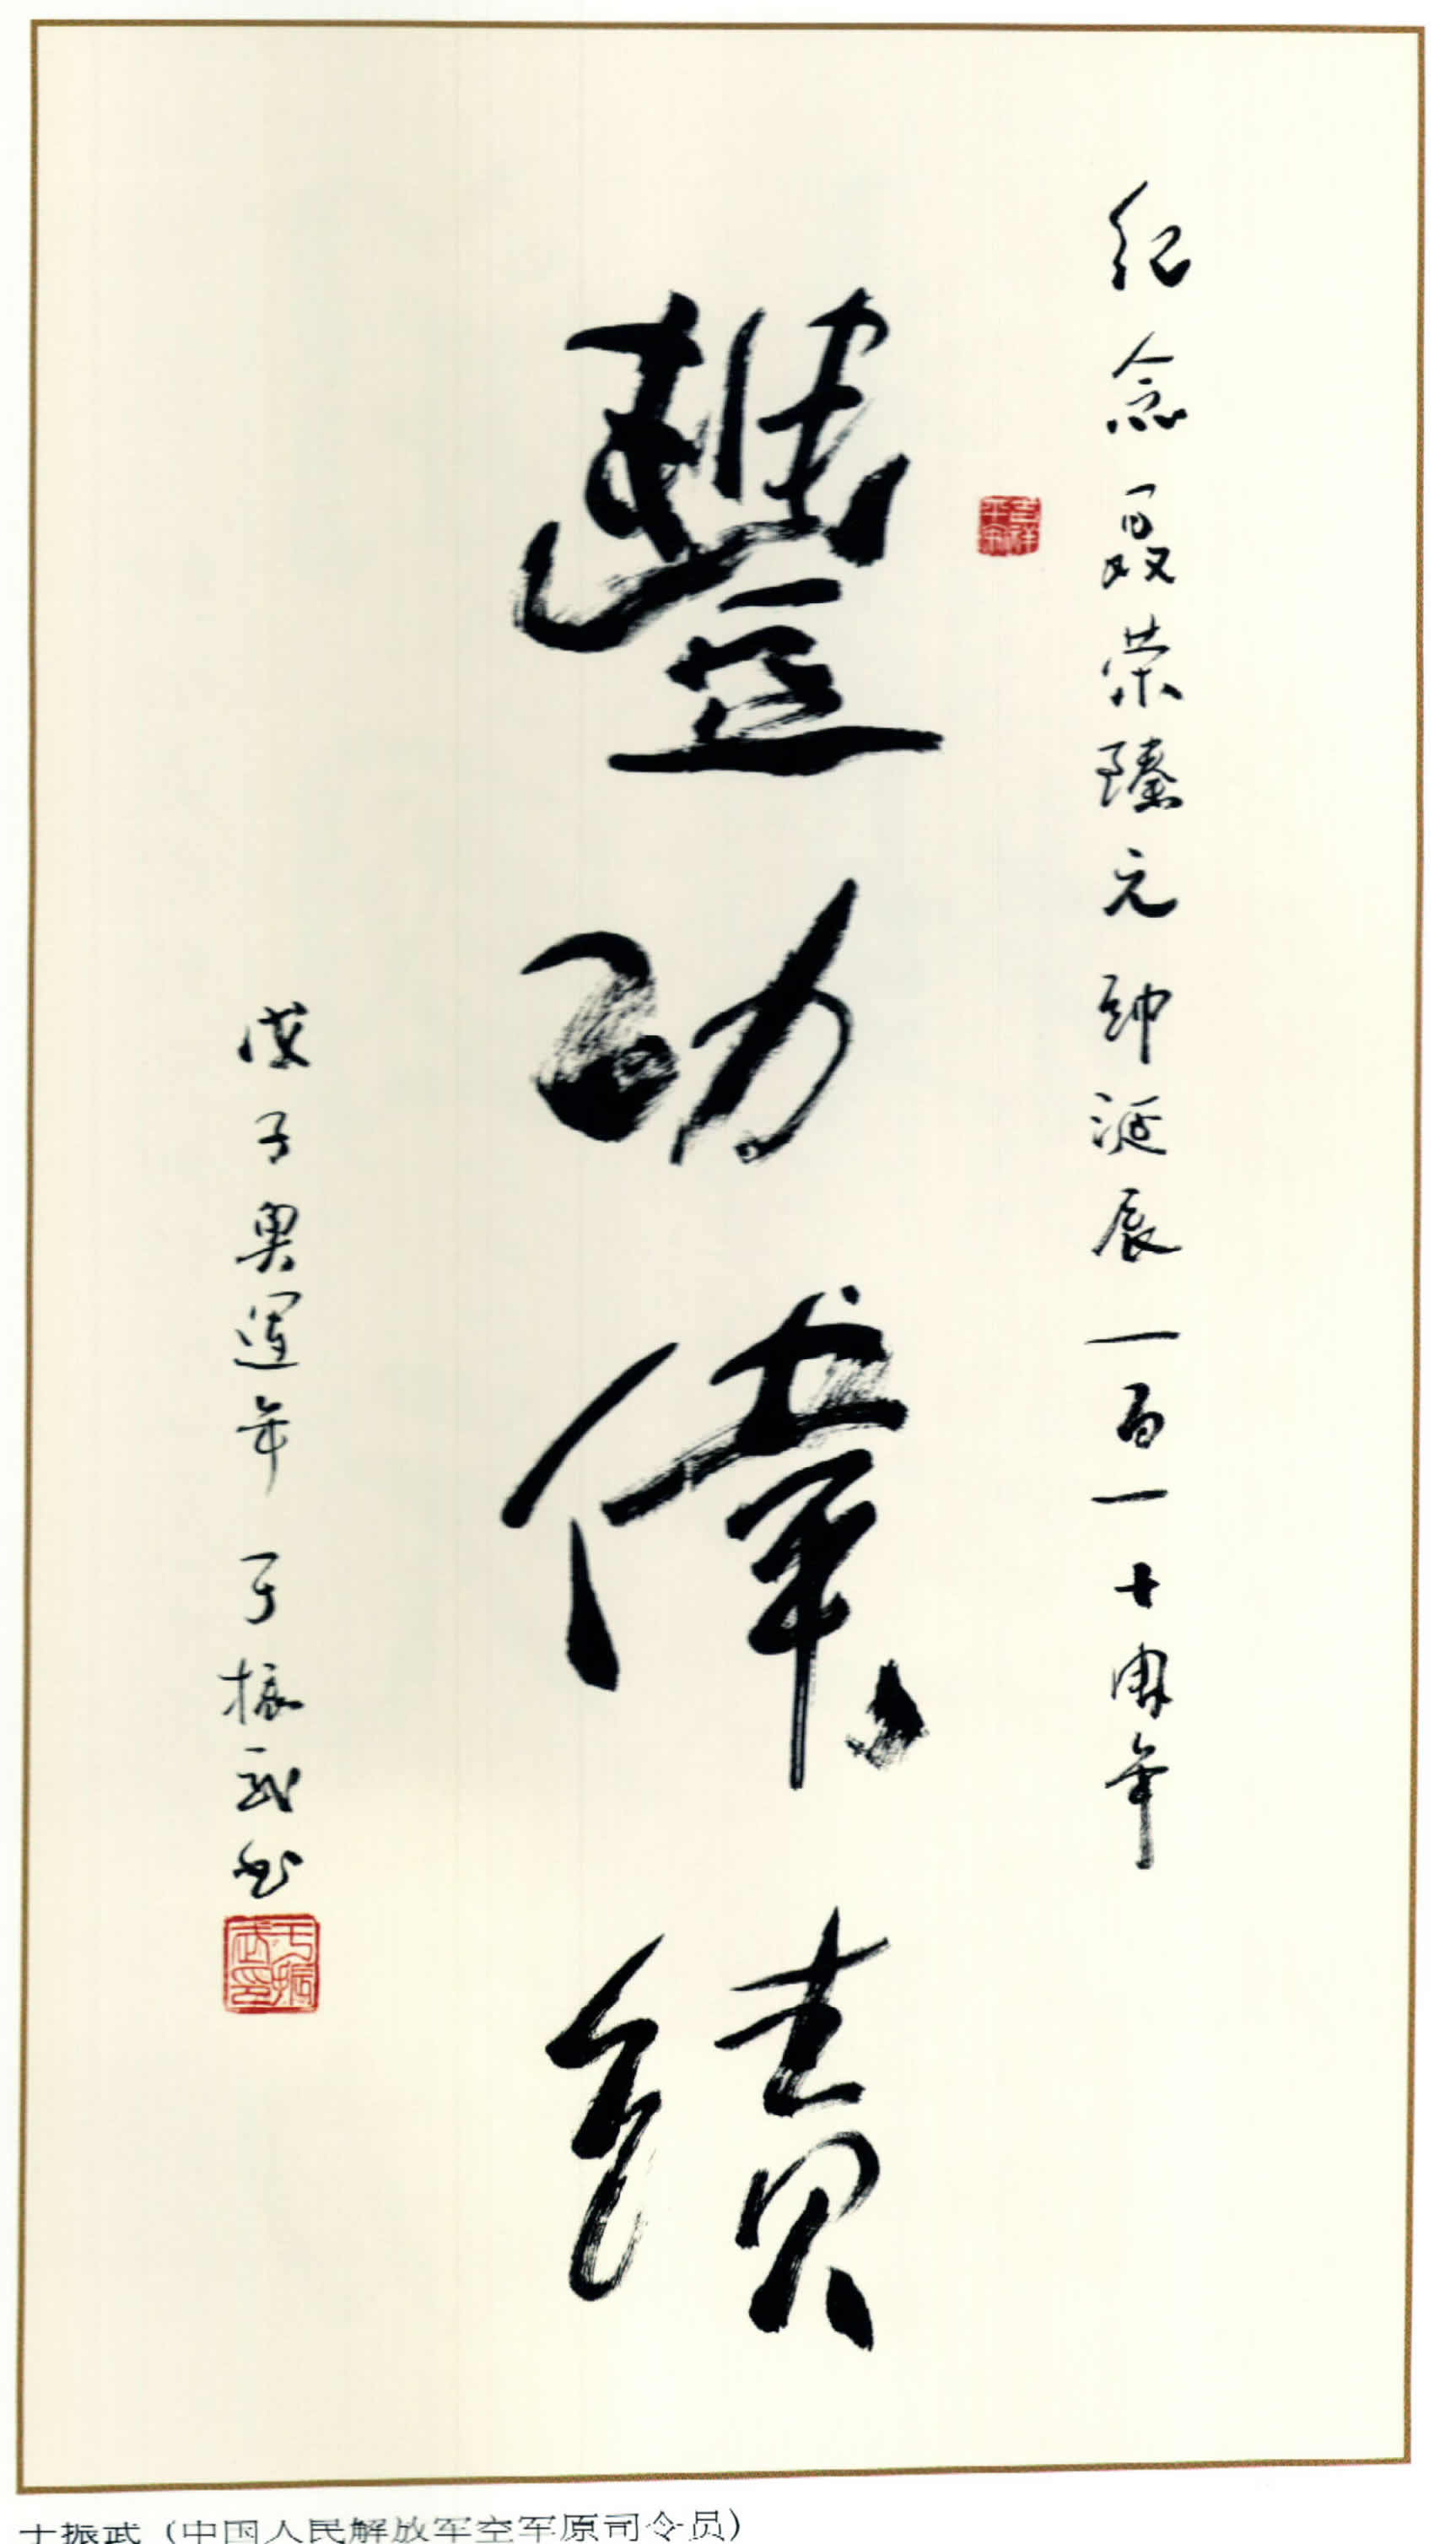 纪念聂荣臻元帅诞辰一百一十周年
豐功偉績
戊子奥运年 于振武书
于振武印
于振武（中国人民解放军空军原司令员）